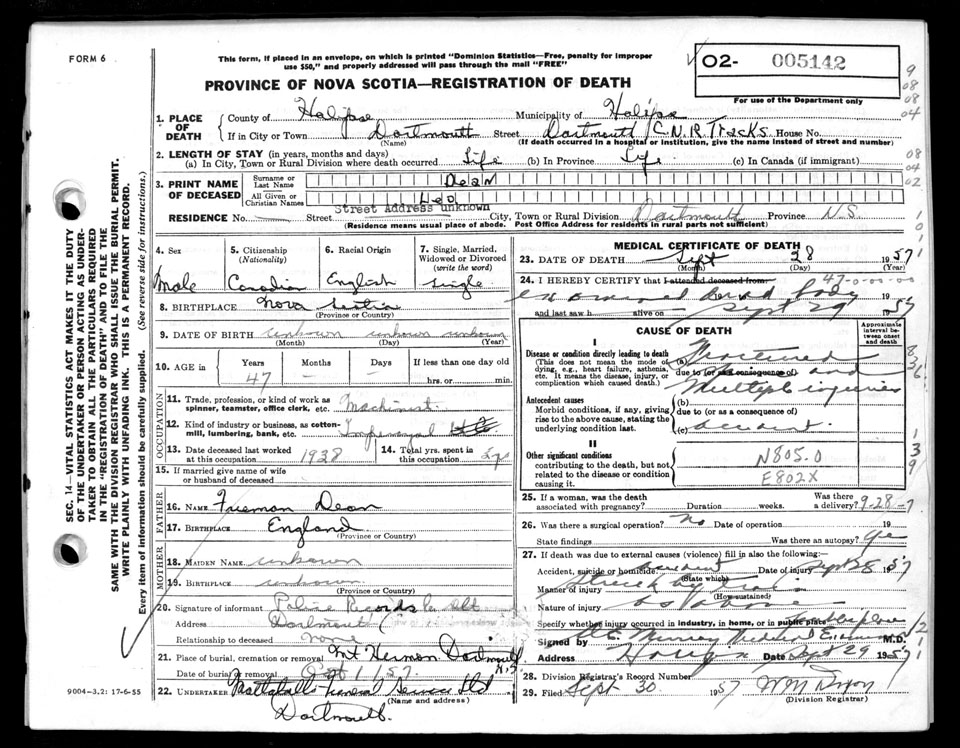 FORM 6
This form, if placed in an envelope, on which is printed "Dominion Statistics—Free, penalty for improper
use $50," and properly addressed will pass through the mail "FREE"
PROVINCE OF NOVA SCOTIA—REGISTRATION OF DEATH
O2- 005142
For use of the Department only
1. PLACE OF DEATH
County of Halifax Municipality of Halifax
If in City or Town Dartmouth Street Dartmouth C.N.R Tracks House No.
(Name) (If death occurred in a hospital or institution, give the name instead of street and number)
2. LENGTH OF STAY (in years, months and days)
(a) In City, Town or Rural Division where death occurred Life (b) In Province Life (c) In Canada (if immigrant)
3. PRINT NAME OF DECEASED
Surname or Last Name Dean
All Given or Christian Names Leo
Street Address unknown
RESIDENCE No. — Street City, Town or Rural Division Dartmouth Province N.S.
(Residence means usual place of abode. Post Office Address for residents in rural parts not sufficient)
4. Sex Male
5. Citizenship (Nationality) Canadian
6. Racial Origin English
7. Single, Married, Widowed or Divorced (write the word) Single
8. BIRTHPLACE Nova Scotia
(Province or Country)
9. DATE OF BIRTH unknown unknown unknown
(Month) (Day) (Year)
10. AGE in Years 47 Months — Days — If less than one day old
hrs. or min.
OCCUPATION
11. Trade, profession, or kind of work as spinner, teamster, office clerk, etc. Machinist.
12. Kind of industry or business, as cotton-mill, lumbering, bank, etc. Imperoyal
13. Date deceased last worked at this occupation 1938
14. Total yrs. spent in this occupation
15. If married give name of wife or husband of deceased
FATHER
16. NAME Freeman Dean
17. BIRTHPLACE England
(Province or Country)
MOTHER
18. MAIDEN NAME unknown
19. BIRTHPLACE unknown
(Province or Country)
20. Signature of informant Police Records
Address Dartmouth
Relationship to deceased none
21. Place of burial, cremation or removal Mt Hermon Dartmouth N.S
Date of burial or removal Oct 1 1957
22. UNDERTAKER Mattatall Funeral Service Ltd
(Name and address)
Dartmouth.
MEDICAL CERTIFICATE OF DEATH
23. DATE OF DEATH Sept 28 1957
(Month) (Day) (Year)
24. I HEREBY CERTIFY that I attended deceased from 47-0-00-00
examined dead body 19
and last saw h alive on Sept 29 1957
CAUSE OF DEATH
Approximate interval between onset and death
I
Disease or condition directly leading to death
(This does not mean the mode of dying, e.g., heart failure, asthenia, etc. It means the disease, injury, or complication which caused death.)
(a) Fractured
due to (or as a consequence of) and
multiple injuries
Antecedent causes
Morbid conditions, if any, giving rise to the above cause, stating the underlying condition last.
(b)
due to (or as a consequence of)
(c) accident.
II
Other significant conditions
contributing to the death, but not related to the disease or condition causing it.
N805.0
E802X
25. If a woman, was the death associated with pregnancy? Duration weeks. Was there a delivery? 9-28-7
26. Was there a surgical operation? no Date of operation 19
State findings Was there an autopsy?
27. If death was due to external causes (violence) fill in also the following:
Accident, suicide or homicide accident Date of injury Sept 28 1957
(State which)
Manner of injury Struck by train
(How sustained)
Nature of injury as above
Specify whether injury occurred in industry, in home, or in public place
Signed by Murray Medical Examiner M.D.
Address Halifax Date Sept 29 1957
28. Division Registrar's Record Number
29. Filed Sept 30 1957
(Division Registrar)
SEC. 14—VITAL STATISTICS ACT MAKES IT THE DUTY
OF THE UNDERTAKER OR PERSON ACTING AS UNDER-
TAKER TO OBTAIN ALL THE PARTICULARS REQUIRED
IN THE "REGISTRATION OF DEATH" AND TO FILE THE
SAME WITH THE DIVISION REGISTRAR WHO SHALL ISSUE THE BURIAL PERMIT.
WRITE PLAINLY WITH UNFADING INK. THIS IS A PERMANENT RECORD.
Every item of information should be carefully supplied. (See reverse side for instructions.)
9004-3,2: 17-6-55